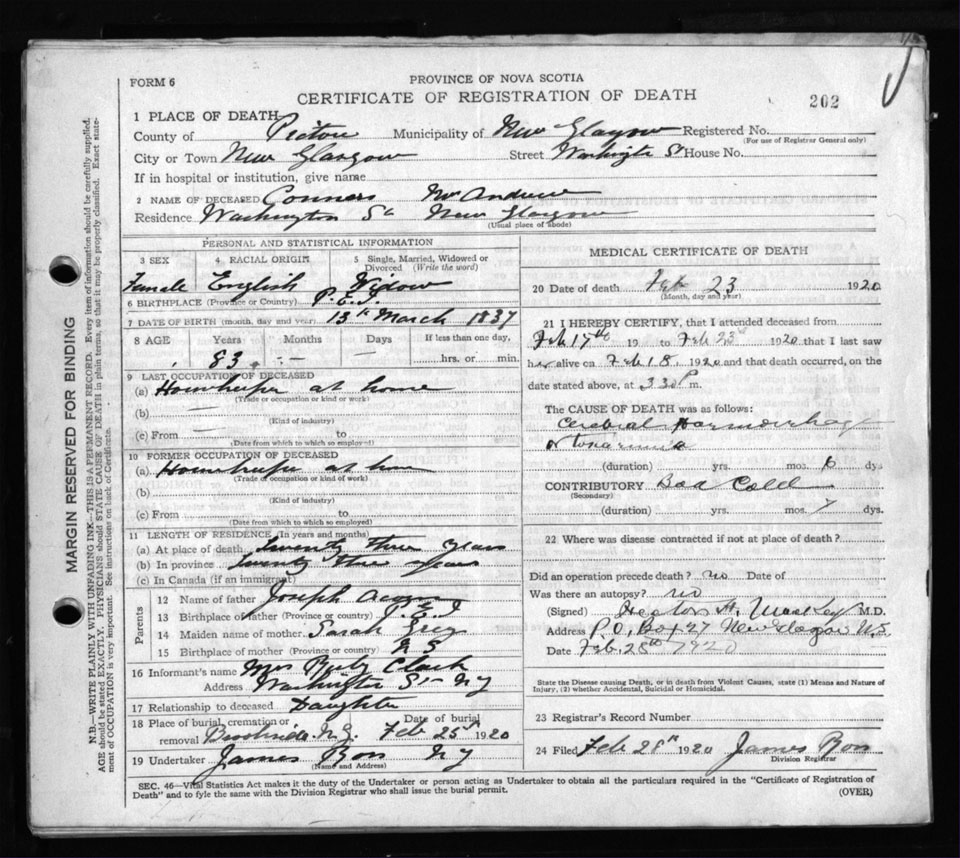 FORM 6
PROVINCE OF NOVA SCOTIA
CERTIFICATE OF REGISTRATION OF DEATH
202
1 PLACE OF DEATH
County of Pictou Municipality of New Glasgow Registered No.
(For use of Registrar General only)
City or Town New Glasgow Street Washington St House No.
If in hospital or institution, give name
2 NAME OF DECEASED Connors Mrs Andrew
Residence Washington St New Glasgow
(Usual place of abode)
PERSONAL AND STATISTICAL INFORMATION
3 SEX 4 RACIAL ORIGIN 5 Single, Married, Widowed or Divorced (Write the word)
Female English Widow
6 BIRTHPLACE (Province or Country) P.E.I.
7 DATE OF BIRTH (month, day and year) 13th March 1837
8 AGE Years Months Days If less than one day,
83 — — hrs. or min.
9 LAST OCCUPATION OF DECEASED
(a) Housekeeper at home
(Trade or occupation or kind of work)
(b) —
(Kind of industry)
(c) From — to
(Date from which to which so employed)
10 FORMER OCCUPATION OF DECEASED
(a) Housekeeper at home
(Trade or occupation or kind of work)
(b)
(Kind of industry)
(c) From to
(Date from which to which so employed)
11 LENGTH OF RESIDENCE (In years and months)
(a) At place of death twenty three years
(b) In province twenty three years
(c) In Canada (if an immigrant)
Parents
12 Name of father Joseph
13 Birthplace of father (Province or country) P.E.I
14 Maiden name of mother Sarah
15 Birthplace of mother (Province or country) N S
16 Informant's name Mrs Ruby Clark
Address Washington St N G
17 Relationship to deceased Daughter
18 Place of burial, cremation or removal Brookside N.G. Date of burial Feb 25th 1920
19 Undertaker James Ross N G
(Name and Address)
MEDICAL CERTIFICATE OF DEATH
20 Date of death Feb 23 1920
(Month, day and year)
21 I HEREBY CERTIFY, that I attended deceased from
Feb 17th 19 to Feb 23rd 1920 that I last saw
her alive on Feb 18 1920 and that death occurred, on
date stated above, at 3 30 P m.
The CAUSE OF DEATH was as follows:
Cerebral Haemorrhage
(duration) yrs. mos. 6 dys
CONTRIBUTORY Bad Cold
(Secondary)
(duration) yrs. mos. 7 dys
22 Where was disease contracted if not at place of death?
Did an operation precede death? no Date of
Was there an autopsy? no
(Signed) Hector H. M.D.
Address P.O. Box 27 New Glasgow N.S.
Date Feb. 28th 1920
State the Disease causing Death, or in death from Violent Causes, state (1) Means and Nature of Injury, (2) whether Accidental, Suicidal or Homicidal.
23 Registrar's Record Number
24 Filed Feb 28th 1920 James Ross
Division Registrar
SEC. 46—Vital Statistics Act makes it the duty of the Undertaker or person acting as Undertaker to obtain all the particulars required in the "Certificate of Registration of
Death" and to fyle the same with the Division Registrar who shall issue the burial permit. (OVER)
MARGIN RESERVED FOR BINDING
N.B.—WRITE PLAINLY WITH UNFADING INK—THIS IS A PERMANENT RECORD. Every item of information should be carefully supplied.
AGE should be stated EXACTLY. PHYSICIANS should STATE CAUSE OF DEATH in plain terms, so that it may be properly classified. Exact statement of OCCUPATION is very important. See instructions on back of Certificate.